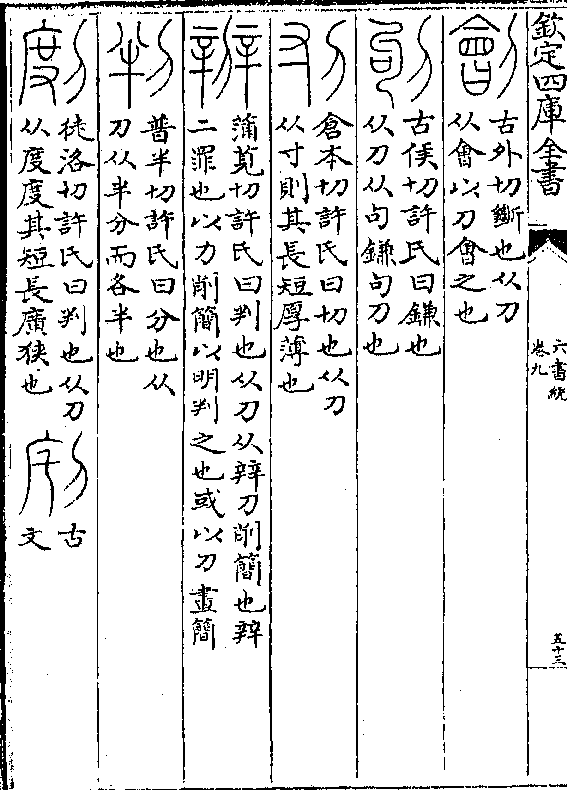 欽定四庫全書
六書統
卷九
五十三
劊
古外切斷也从刀
从會以刀會之也
刏
古侯切許氏曰鎌也
从刀从句鎌句刀也
刌
倉本切許氏曰切也从刀
从寸則其長短厚薄也
辧
蒲莧切許氏曰判也从刀从辡刀削簡也辡
二罪也以刀削簡以明判之也或以刀畫簡
判
普半切許氏曰分也从
刀从半分而各半也
剫
徒洛切許氏曰判也从刀
从度度其短長廣狹也
古
文